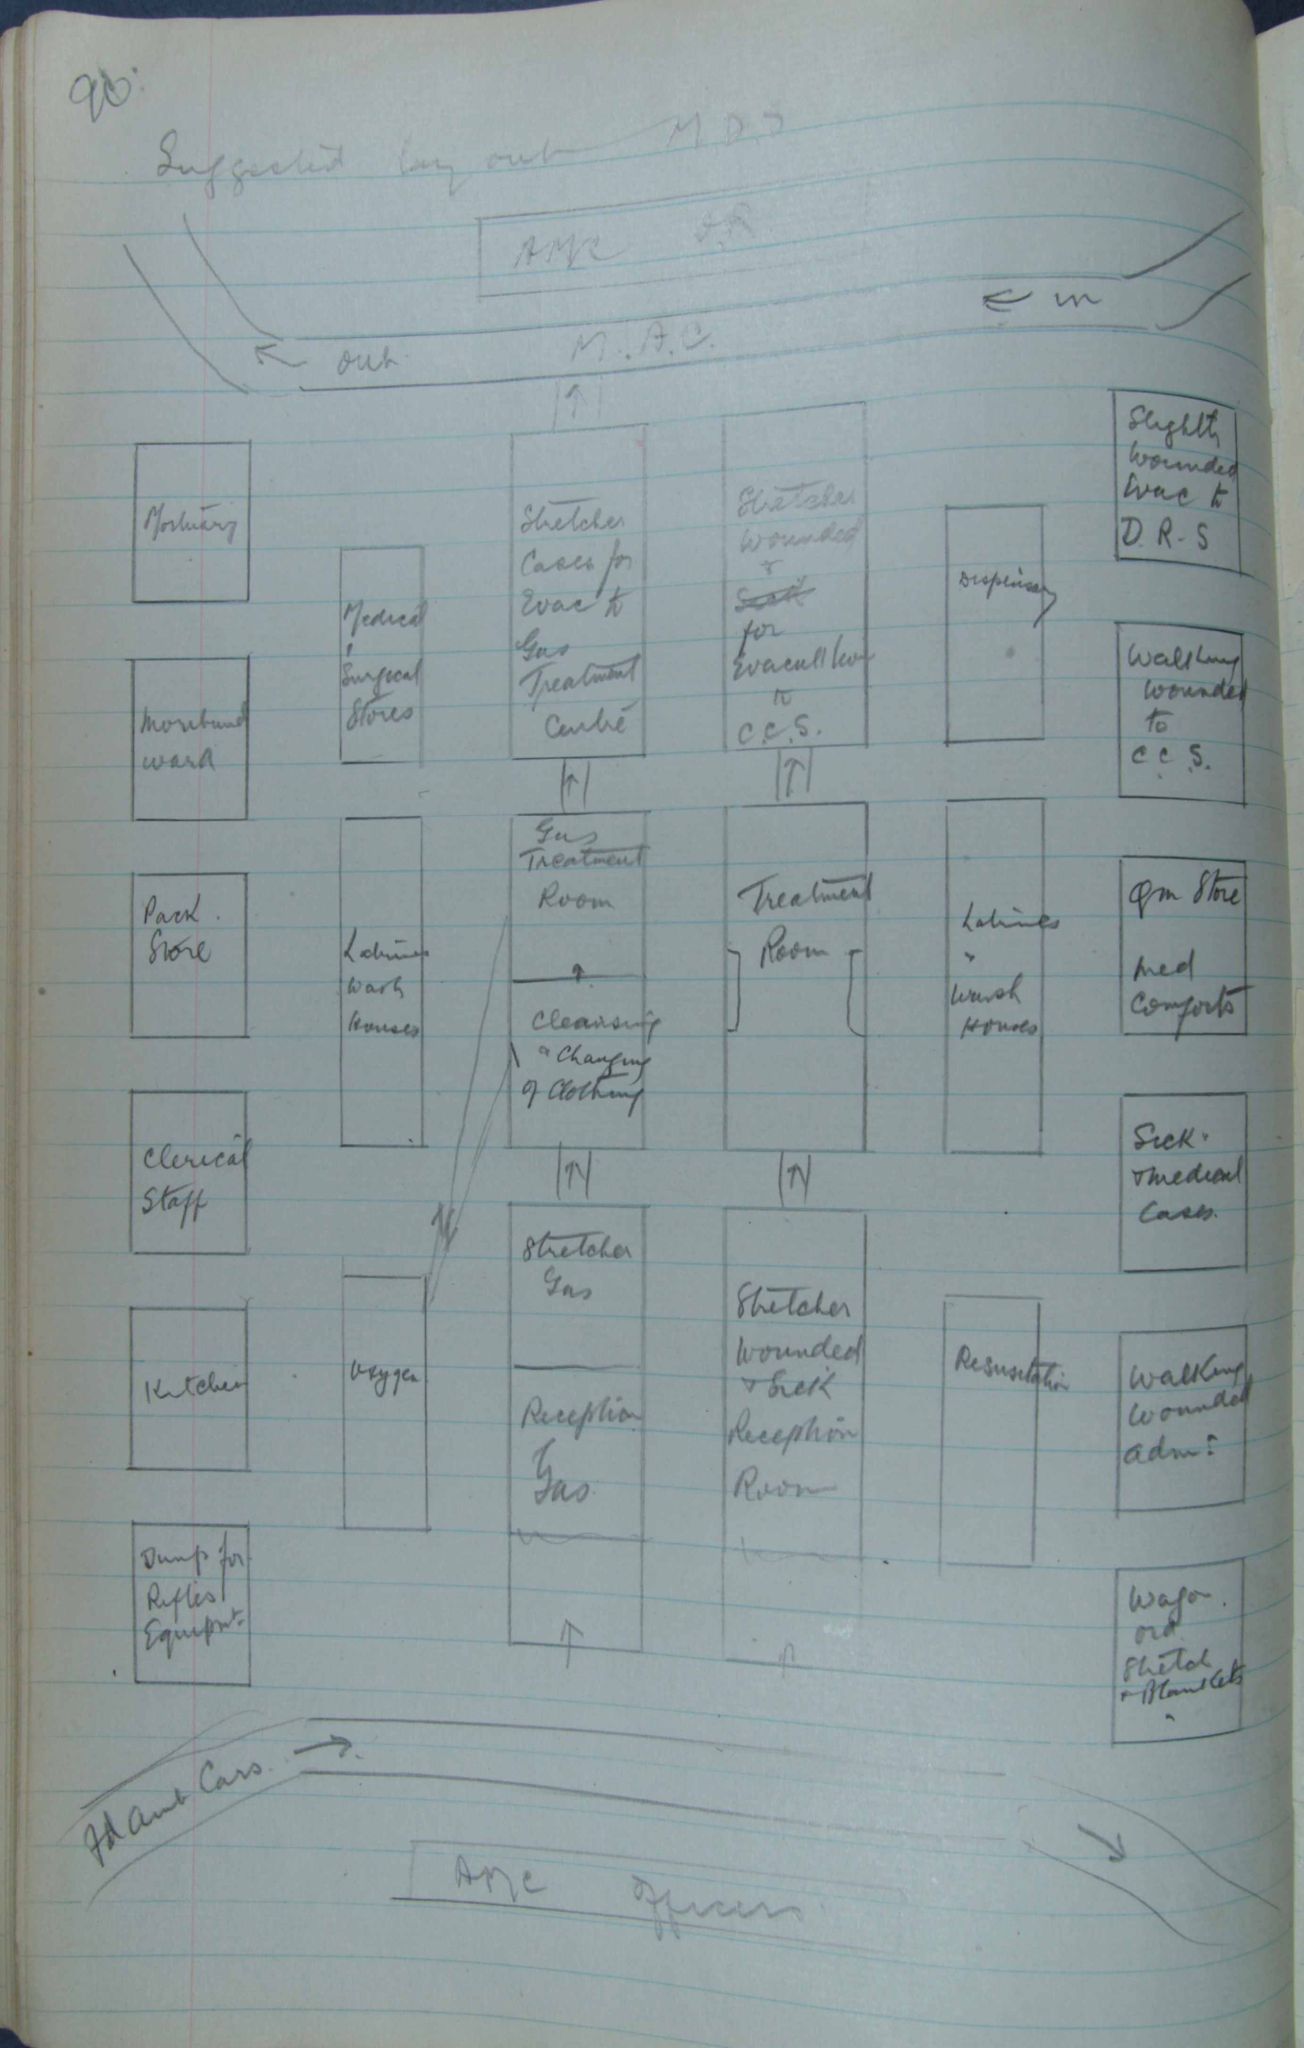 90.
Suggested lay out M D S
AMC O.R
← in
← out
M.A.C.
Mortuary
Moribund
ward
Pack
Store
Clerical
Staff
Kitchen
Dump for
Rifles
Equipmt
Medical
Surgical
Stores
Latrines
Wash
Houses
Oxygen
Stretcher
Cases for
Evac to
Gas
Treatment
Centre
Gas
Treatment
Room
Cleansing
& Changing
of Clothing
Stretcher
Gas
Reception
Gas
Stretcher
wounded
&
Sick
for
Evacuation
to
C.C.S.
Treatment
Room
Stretcher
Wounded
& Sick
Reception
Room
Dispensary
Latrines
&
Wash
Houses
Resusitation
Slightly
wounded
Evac to
D.R.S
Walking
wounded
to
C.C.S.
Qm Store
Med
Comforts
Sick
& medical
Cases.
Walking
Wounded
Adm:
Wagon
Stretch
& Blankets
Fd Amb Cars. →
AMC Officers